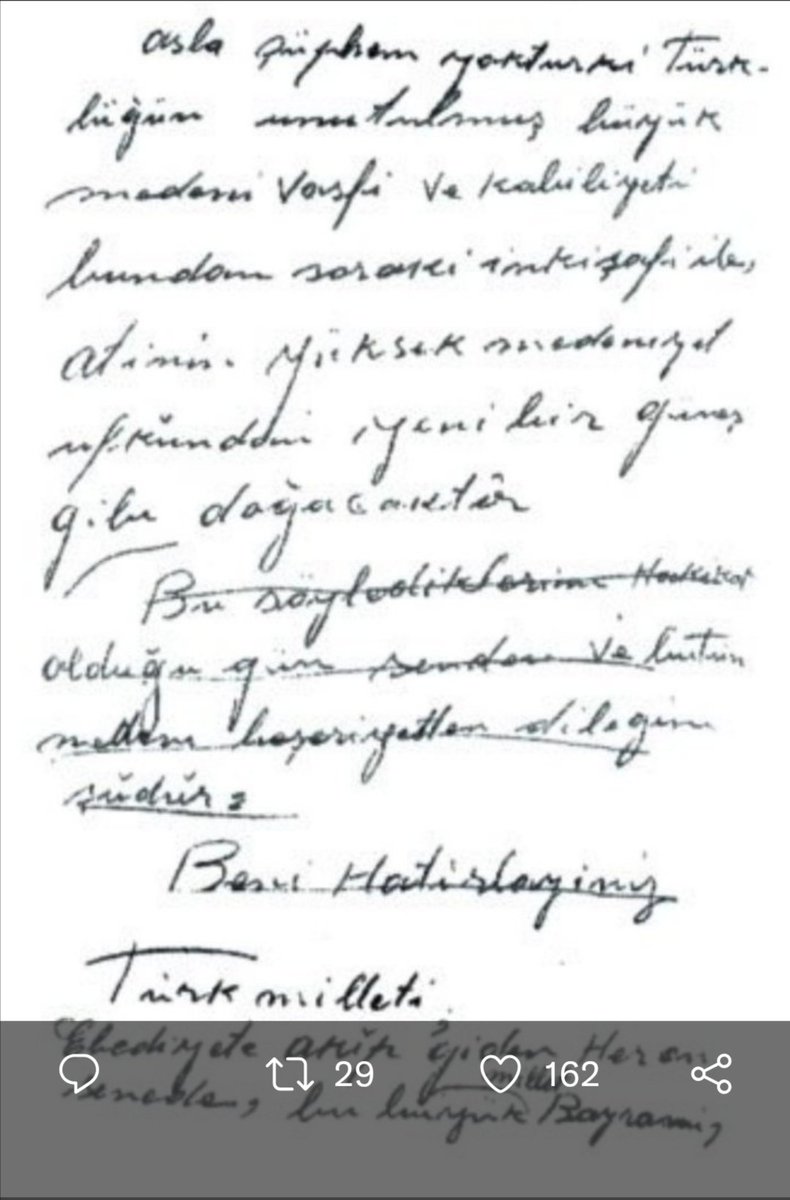 asla şüphem yokturki Türk-
lüğün unutulmuş büyük
medeni vasfi ve kabiliyeti
bundan soraki inkişafi ile,
atinin yüksek medeniyet
ufkundan yeni bir güneş
gibi doğacaktır
Bu söylediklerim Hakikat
olduğu gün senden ve bütün
medeni beşeriyetten dileğim
şudur:
Beni Hatirlayiniz
Türk milleti,
Ebediyete akıp giden Her on
senede, bu büyük millet Bayramı,
29 162